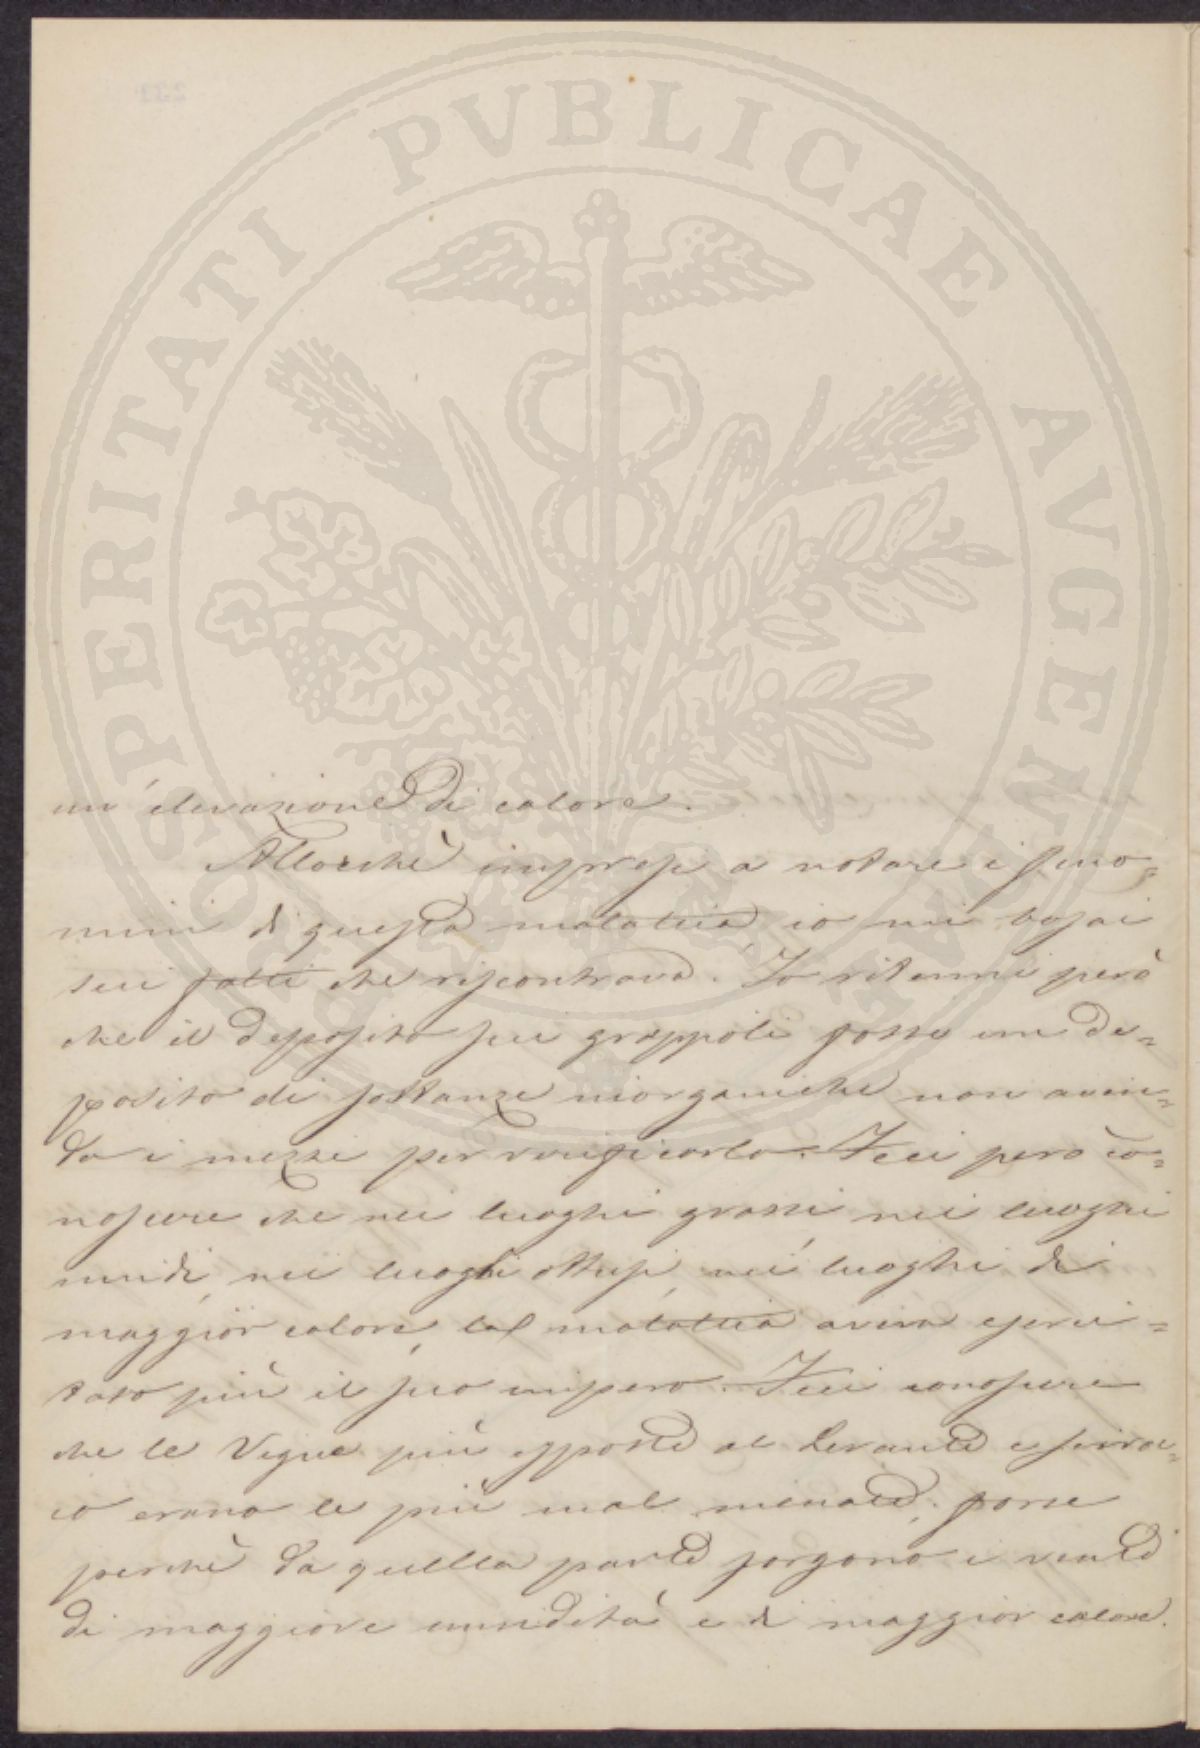 PROSPERITATI PVBLICAE AVGENDAE
un' elevazione di calore.
Allorchè impresi a notare i feno=
mini di questa malattia io mi basai
sui fatti che riscontrava. Io ritenni però
che il deposito sui grappoli fosse un de=
posito di sostanze inorganiche non aven=
do i mezzi per verificarlo. Feci però co=
noscere che nei luoghi grassi nei luoghi
umidi, nei luoghi ottusi, nei luoghi di
maggior calore, la malattia aveva eserci=
tato più il suo impero. Feci conoscere
che le Vigne più esposte al Levante e siroc=
co erano le più mal menate, forse
perchè da quella parte sorgono i venti
di maggiore umidità e di maggior calore.